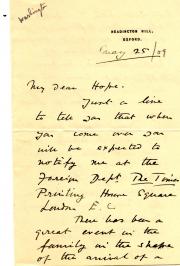 Washington
HEADINGTON HILL,
OXFORD.
May 25/09
My dear Hope.
Just a line
to tell you that when
you come over you
will be expected to
notify me at the
Foreign Dept The Times
Printing House Square
London E.C
There has been a
great event in the
family in the shape
of the arrival of a